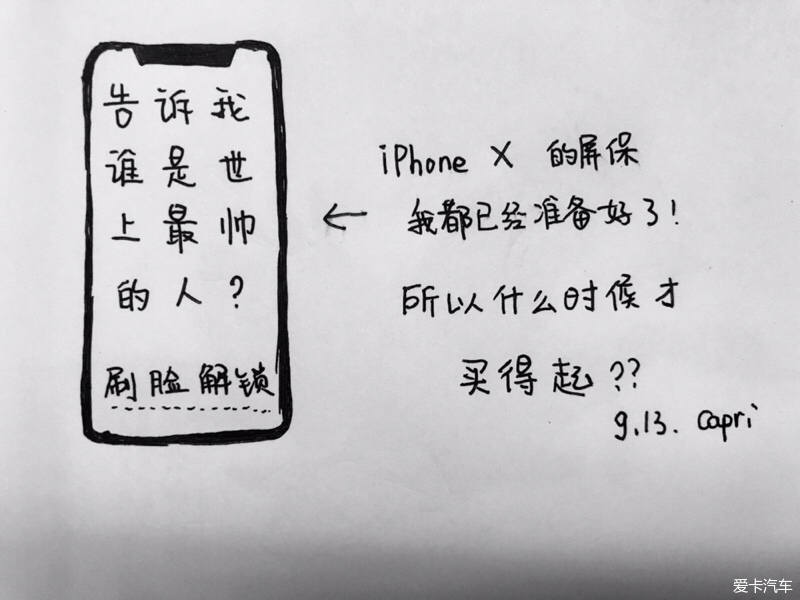 告诉我
谁是世
上最帅
的人?
刷脸解锁
iPhone X 的屏保
我都已经准备好了!
所以什么时候才
买得起??
9.13. Capri
爱卡汽车